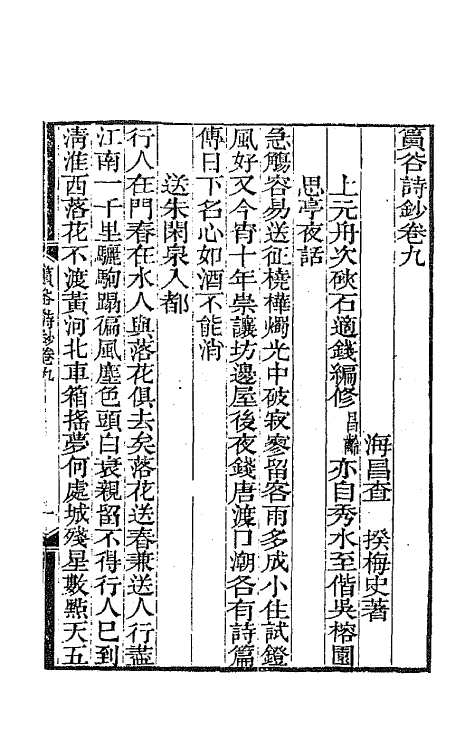 篔谷詩鈔卷九
海昌查　揆梅史著
上元舟次硤石適錢編修昌齡亦自秀水至偕吳榕園
思亭夜話
急觴容易送征橈樺燭光中破寂寥留客雨多成小住試鐙
風好又今宵十年崇讓坊邊屋後夜錢唐渡口潮各有詩篇
傳日下名心如酒不能消
送朱閑泉入都
行人在門春在水人與落花俱去矣落花送春兼送人行盡
江南一千里驪駒蹋徧風塵色頭白衰親留不得行人已到
淸淮西落花不渡黃河北車箱搖夢何處城殘星數點天五
篔谷詩鈔卷九
一